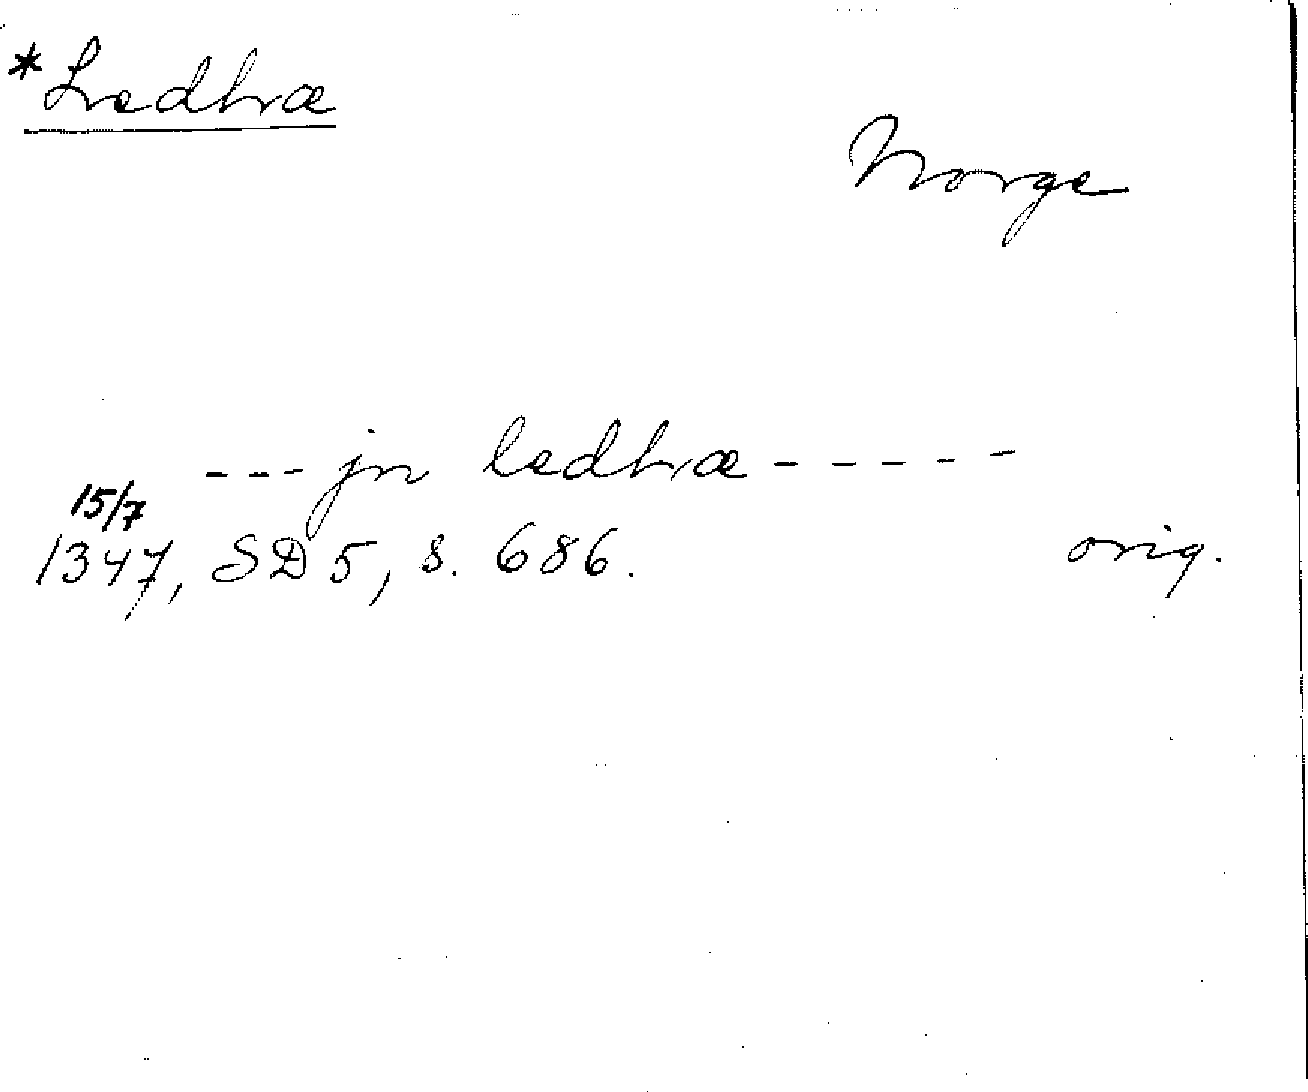 *Ledhæ
Norge
--- jn ledhæ -----
15/7
1347, SD 5, s. 686.
orig.